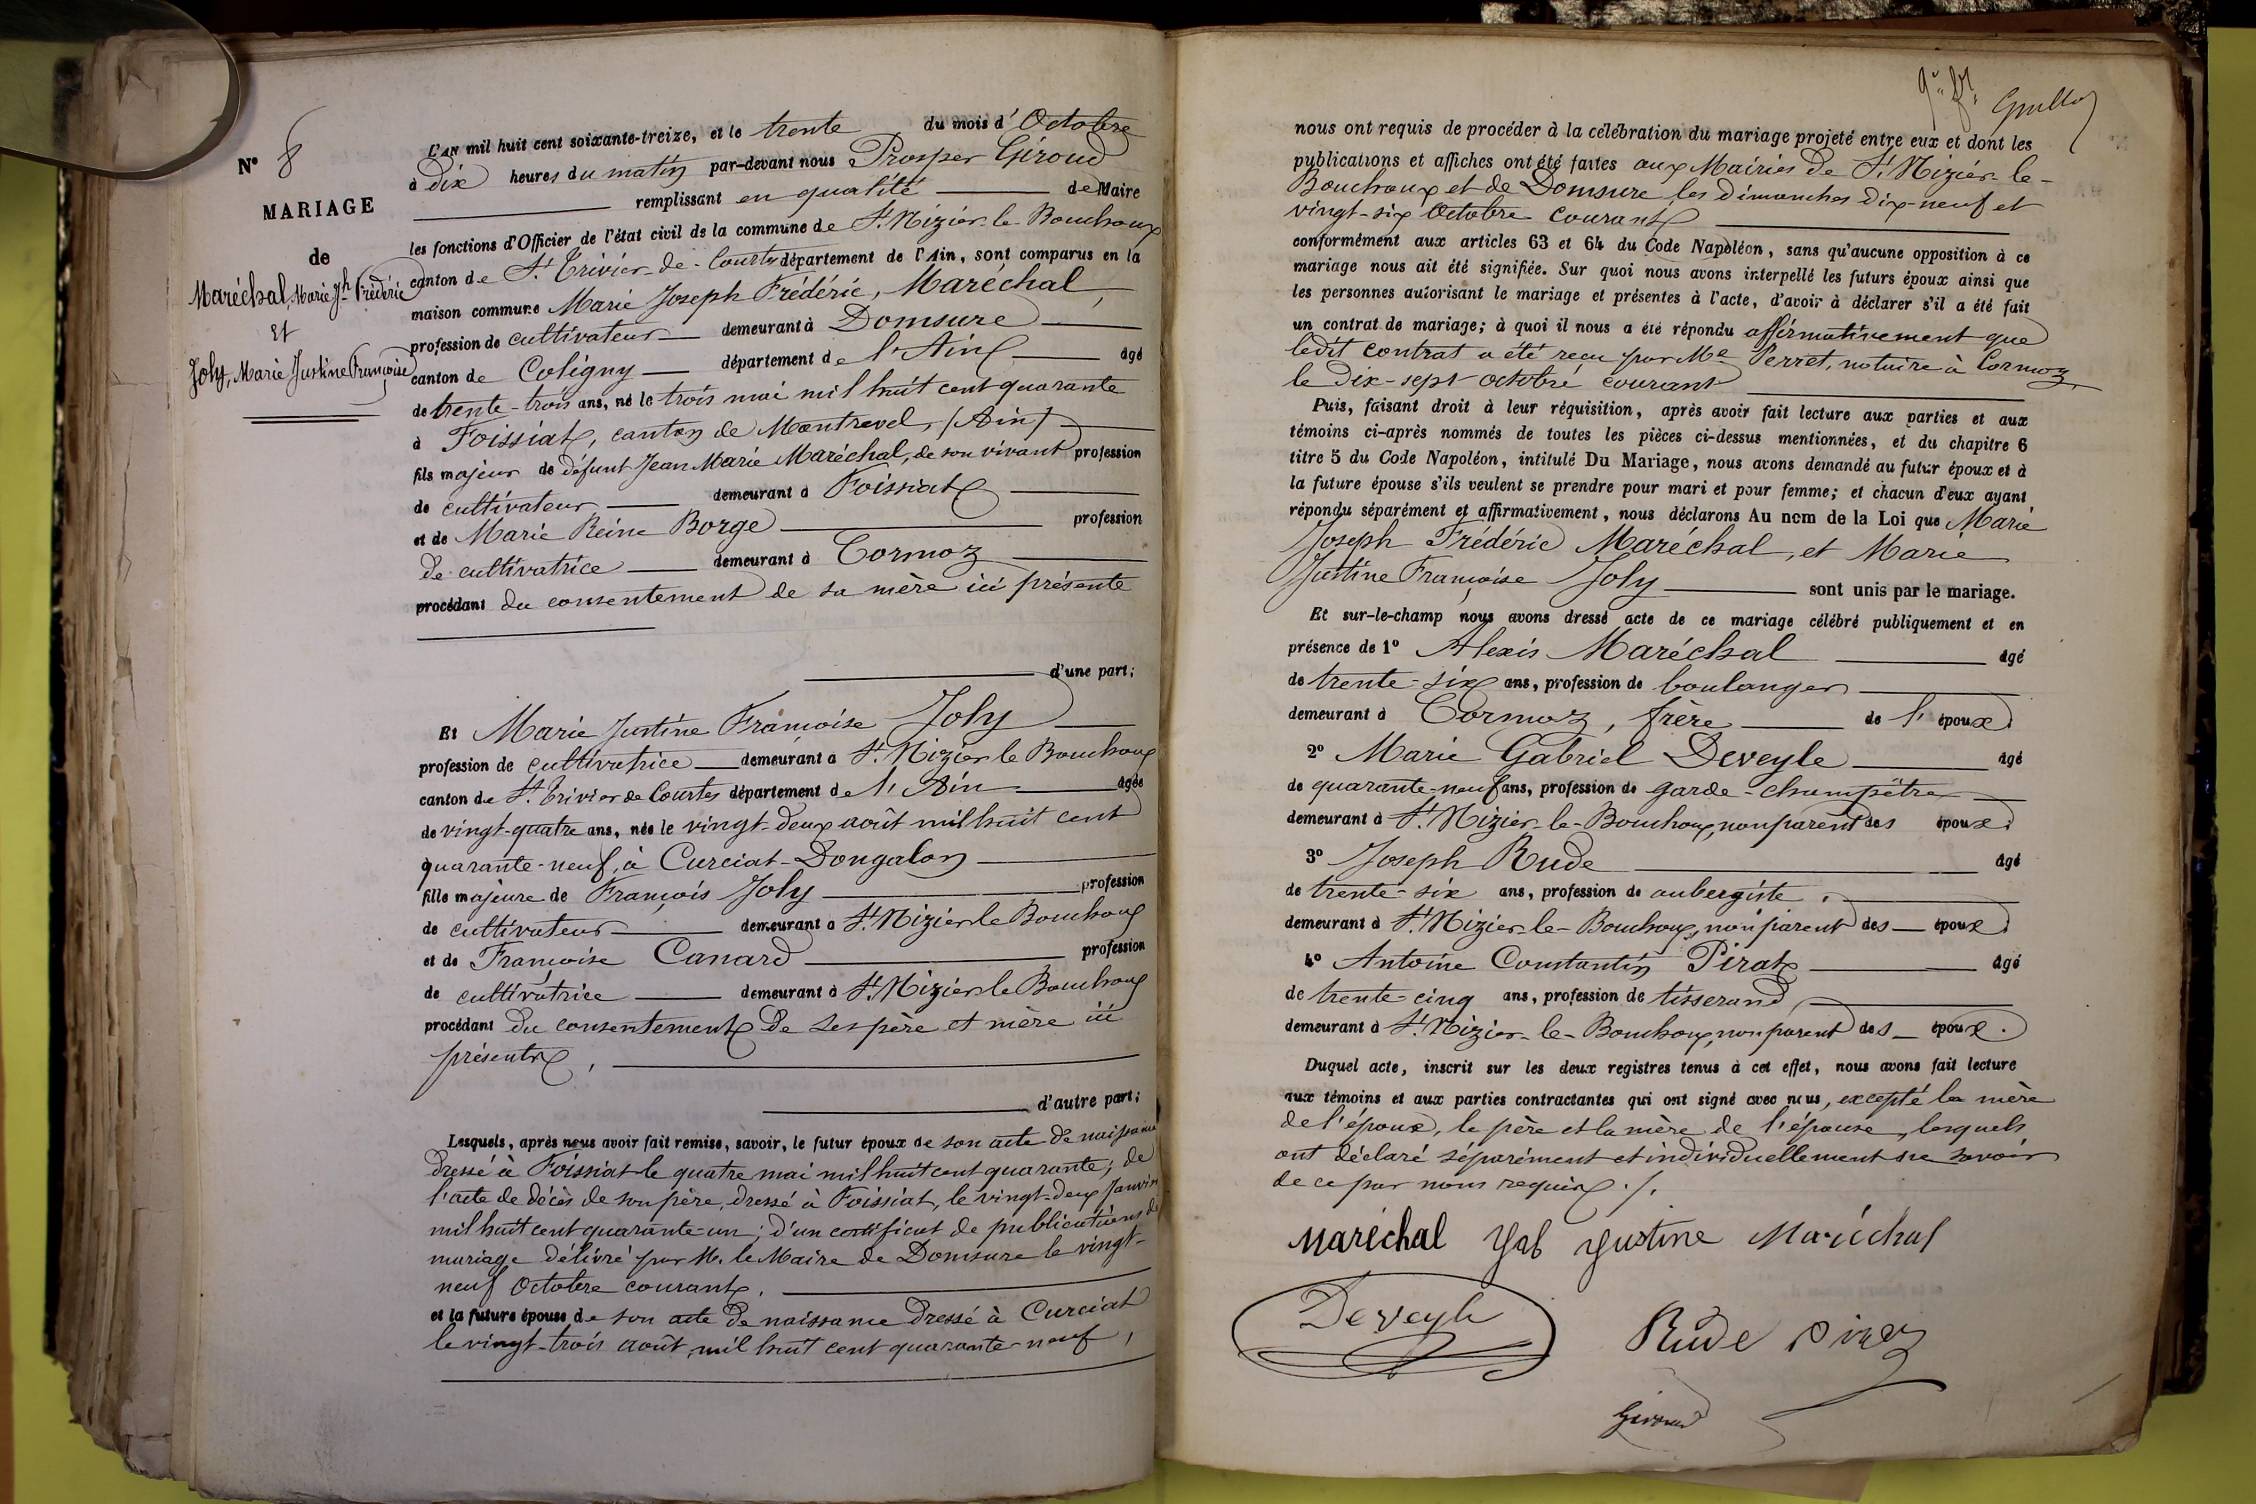 N° 8
MARIAGE
de
Maréchal, Marie Jph Frédéric
Et
Joly, Marie Justine Françoise
L'AN mil huit cent soixante-treize, et le trente du mois d'Octobre
à dix heures du matin par-devant nous Prosper Giroud
remplissant en qualité de Maire
les fonctions d'Officier de l'état civil de la commune de St. Nizier-le-Bouchoux
canton de St. Trivier-de-Courtes département de l'Ain, sont comparus en la
maison commune Marie Joseph Frédéric, Maréchal,
profession de cultivateur demeurant à Domsure
canton de Coligny département de l'Ain âgé
de trente-trois ans, né le trois mai mil huit cent quarante
à Foissiat, canton de Montrevel, (Ain)
fils majeur de défunt Jean Marie Maréchal, de son vivant profession
de cultivateur demeurant à Foissiat
et de Marie Reine Borge profession
de cultivatrice demeurant à Cormoz
procédant du consentement de sa mère ici présente
d'une part;
Et Marie Justine Françoise Joly
profession de cultivatrice demeurant à St. Nizier le Bouchoux
canton de St. Trivier de Courtes département de l'Ain âgée
de vingt-quatre ans, née le vingt-deux août mil huit cent
quarante-neuf, à Curciat-Dongalon
fille majeure de François Joly profession
de cultivateur demeurant à St. Nizier le Bouchoux
et de Françoise Canard profession
de cultivatrice demeurant à St. Nizier le Bouchoux
procédant du consentement de ses père et mère ici
présents,
d'autre part;
Lesquels, après nous avoir fait remise, savoir, le futur époux de son acte de naissance
dressé à Foissiat le quatre mai mil huit cent quarante; de
l'acte de décès de son père, dressé à Foissiat, le vingt-deux Janvier
mil huit cent quarante-un; d'un certificat de publications de
mariage délivré par M. le Maire de Domsure le vingt-
neuf Octobre courant.
et la future épouse de son acte de naissance dressé à Curciat
le vingt-trois août, mil huit cent quarante-neuf,
nous ont requis de procéder à la célébration du mariage projeté entre eux et dont les
publications et affiches ont été faites aux Mairies de St. Nizier-le-
Bouchoux et de Domsure les dimanches dix-neuf et
vingt-six Octobre courant
conformément aux articles 63 et 64 du Code Napoléon, sans qu'aucune opposition à ce
mariage nous ait été signifiée. Sur quoi nous avons interpellé les futurs époux ainsi que
les personnes autorisant le mariage et présentes à l'acte, d'avoir à déclarer s'il a été fait
un contrat de mariage; à quoi il nous a été répondu affirmativement que
ledit contrat a été reçu par Me Perret, notaire à Cormoz
le dix-sept octobre courant
Puis, faisant droit à leur réquisition, après avoir fait lecture aux parties et aux
témoins ci-après nommés de toutes les pièces ci-dessus mentionnées, et du chapitre 6
titre 5 du Code Napoléon, intitulé Du Mariage, nous avons demandé au futur époux et à
la future épouse s'ils veulent se prendre pour mari et pour femme; et chacun d'eux ayant
répondu séparément et affirmativement, nous déclarons Au nom de la Loi que Marie
Joseph Frédéric Maréchal, et Marie
Justine Françoise Joly sont unis par le mariage.
Et sur-le-champ nous avons dressé acte de ce mariage célébré publiquement et en
présence de 1° Alexis Maréchal âgé
de trente-six ans, profession de boulanger
demeurant à Cormoz, frère de l'époux.
2° Marie Gabriel Deveyle âgé
de quarante-neuf ans, profession de garde-champêtre
demeurant à St. Nizier-le-Bouchoux, non parent des époux.
3° Joseph Rude âgé
de trente-six ans, profession de aubergiste.
demeurant à St. Nizier-le-Bouchoux, non parent des époux.
4° Antoine Constantin Pirat âgé
de trente-cinq ans, profession de tisserand,
demeurant à St. Nizier-le-Bouchoux, non parent des époux.
Duquel acte, inscrit sur les deux registres tenus à cet effet, nous avons fait lecture
aux témoins et aux parties contractantes qui ont signé avec nous, excepté la mère
de l'époux, le père et la mère de l'épouse, lesquels
ont déclaré séparément et individuellement ne savoir
de ce par nous requis ./.
Maréchal Justine Maréchal
Deveyle Rude
Giroud